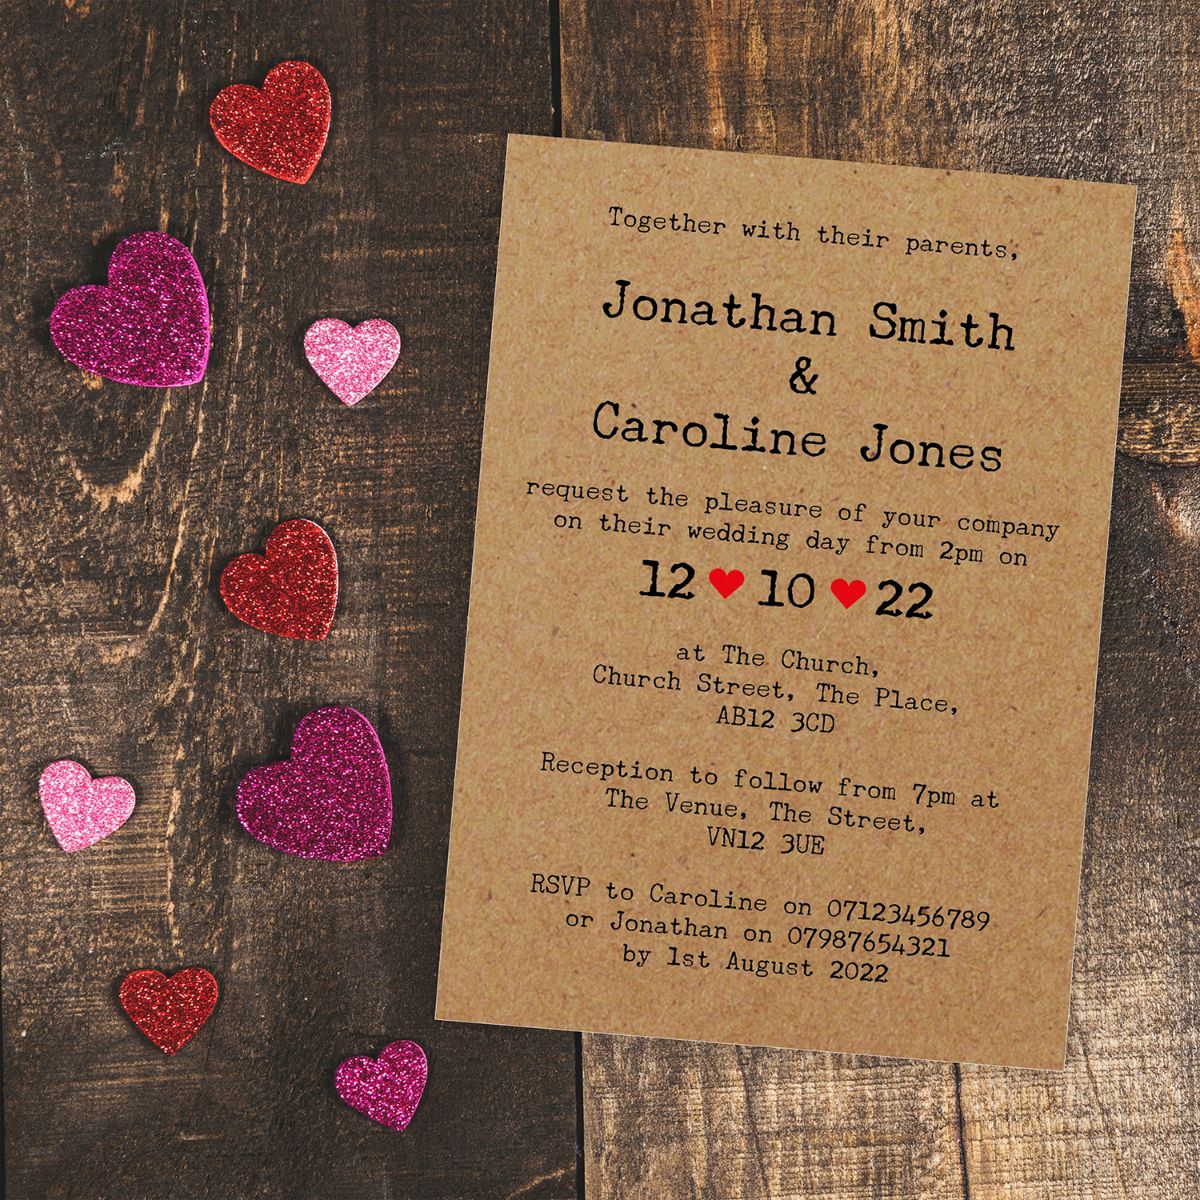 Together with their parents,
Jonathan Smith
&
Caroline Jones
request the pleasure of your company
on their wedding day from 2pm on
12 ♥ 10 ♥ 22
at The Church,
Church Street, The Place,
AB12 3CD
Reception to follow from 7pm at
The Venue, The Street,
VN12 3UE
RSVP to Caroline on 07123456789
or Jonathan on 07987654321
by 1st August 2022